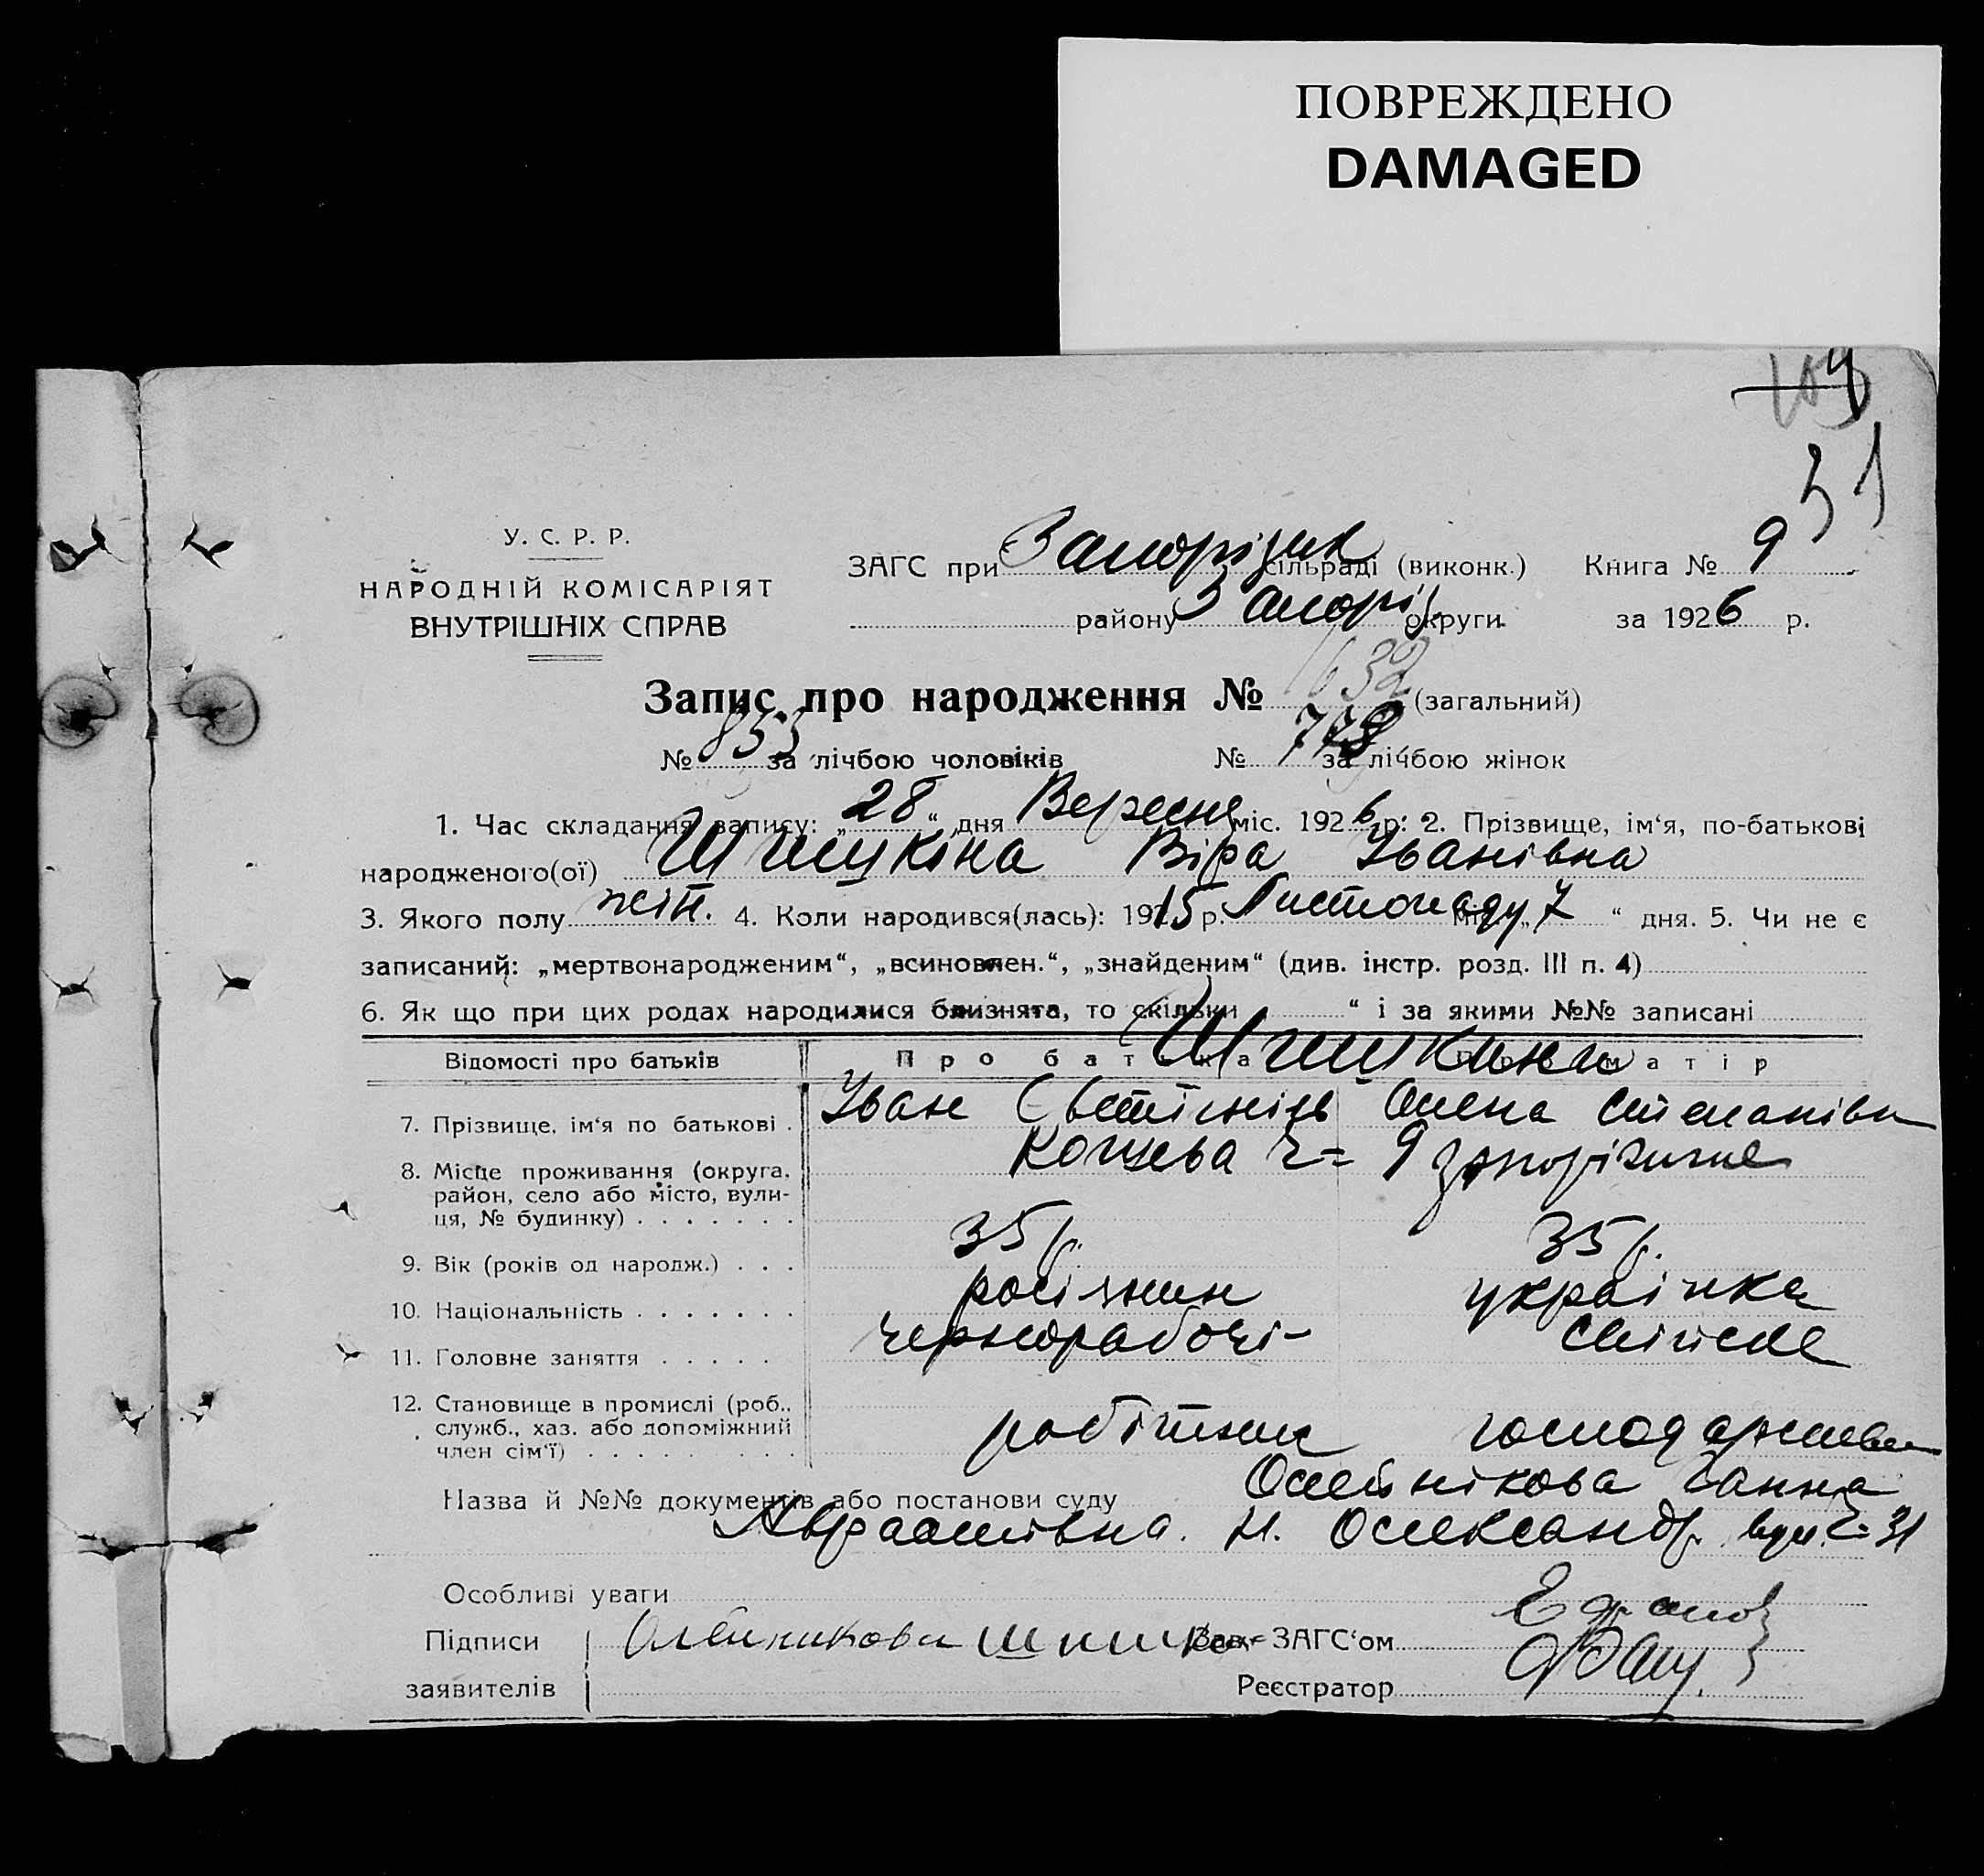 ПОВРЕЖДЕНО
DAMAGED
109
31
У. С. Р. Р.
НАРОДНІЙ КОМІСАРІЯТ
ВНУТРІШНІХ СПРАВ
ЗАГС при Запорізьк сільраді (виконк.) Книга № 9
району Запоріз округи за 1926 р.
Запис про народження № 1632 (загальний)
№ 853 за лічбою чоловіків № 778 за лічбою жінок
1. Час складання запису: „28“ дня Вересня міс. 1926 р: 2. Прізвище, ім‘я, по-батькові
народженого(ої) Шишкіна Віра Іванівна
3. Якого полу жін. 4. Коли народився(лась): 1915 р. Листопаду міс. „7“ дня. 5. Чи не є
записаний: „мертвонародженим“, „всиновлен.“, „знайденим“ (див. інстр. розд. III п. 4)
6. Як що при цих родах народилися близнята, то скільки “ і за якими №№ записані
Відомості про батьків Про батька Про матір
Шишкини
7. Прізвище, ім‘я по батькові . Іван Олена Степанівн
8. Місце проживання (округа, район, село або місто, вулиця, № будинку) . . . . . . . ч= 9 Запоріжжє
9. Вік (років од народж.) . . . 35 р. 35 р.
10. Національність . . . . . . . росіянин українка
11. Головне заняття . . . . . чернорабочі-
12. Становище в промислі (роб., служб., хаз. або допоміжний член сім‘ї) . . . . . . . . робітник
Назва й №№ документів або постанови суду Олейнікова Ганна
Авраамівна. Н. Олександр. вул. ч= 31
Особливі уваги
Підписи Олейникова Зав. ЗАГС‘ом
заявителів Реєстратор